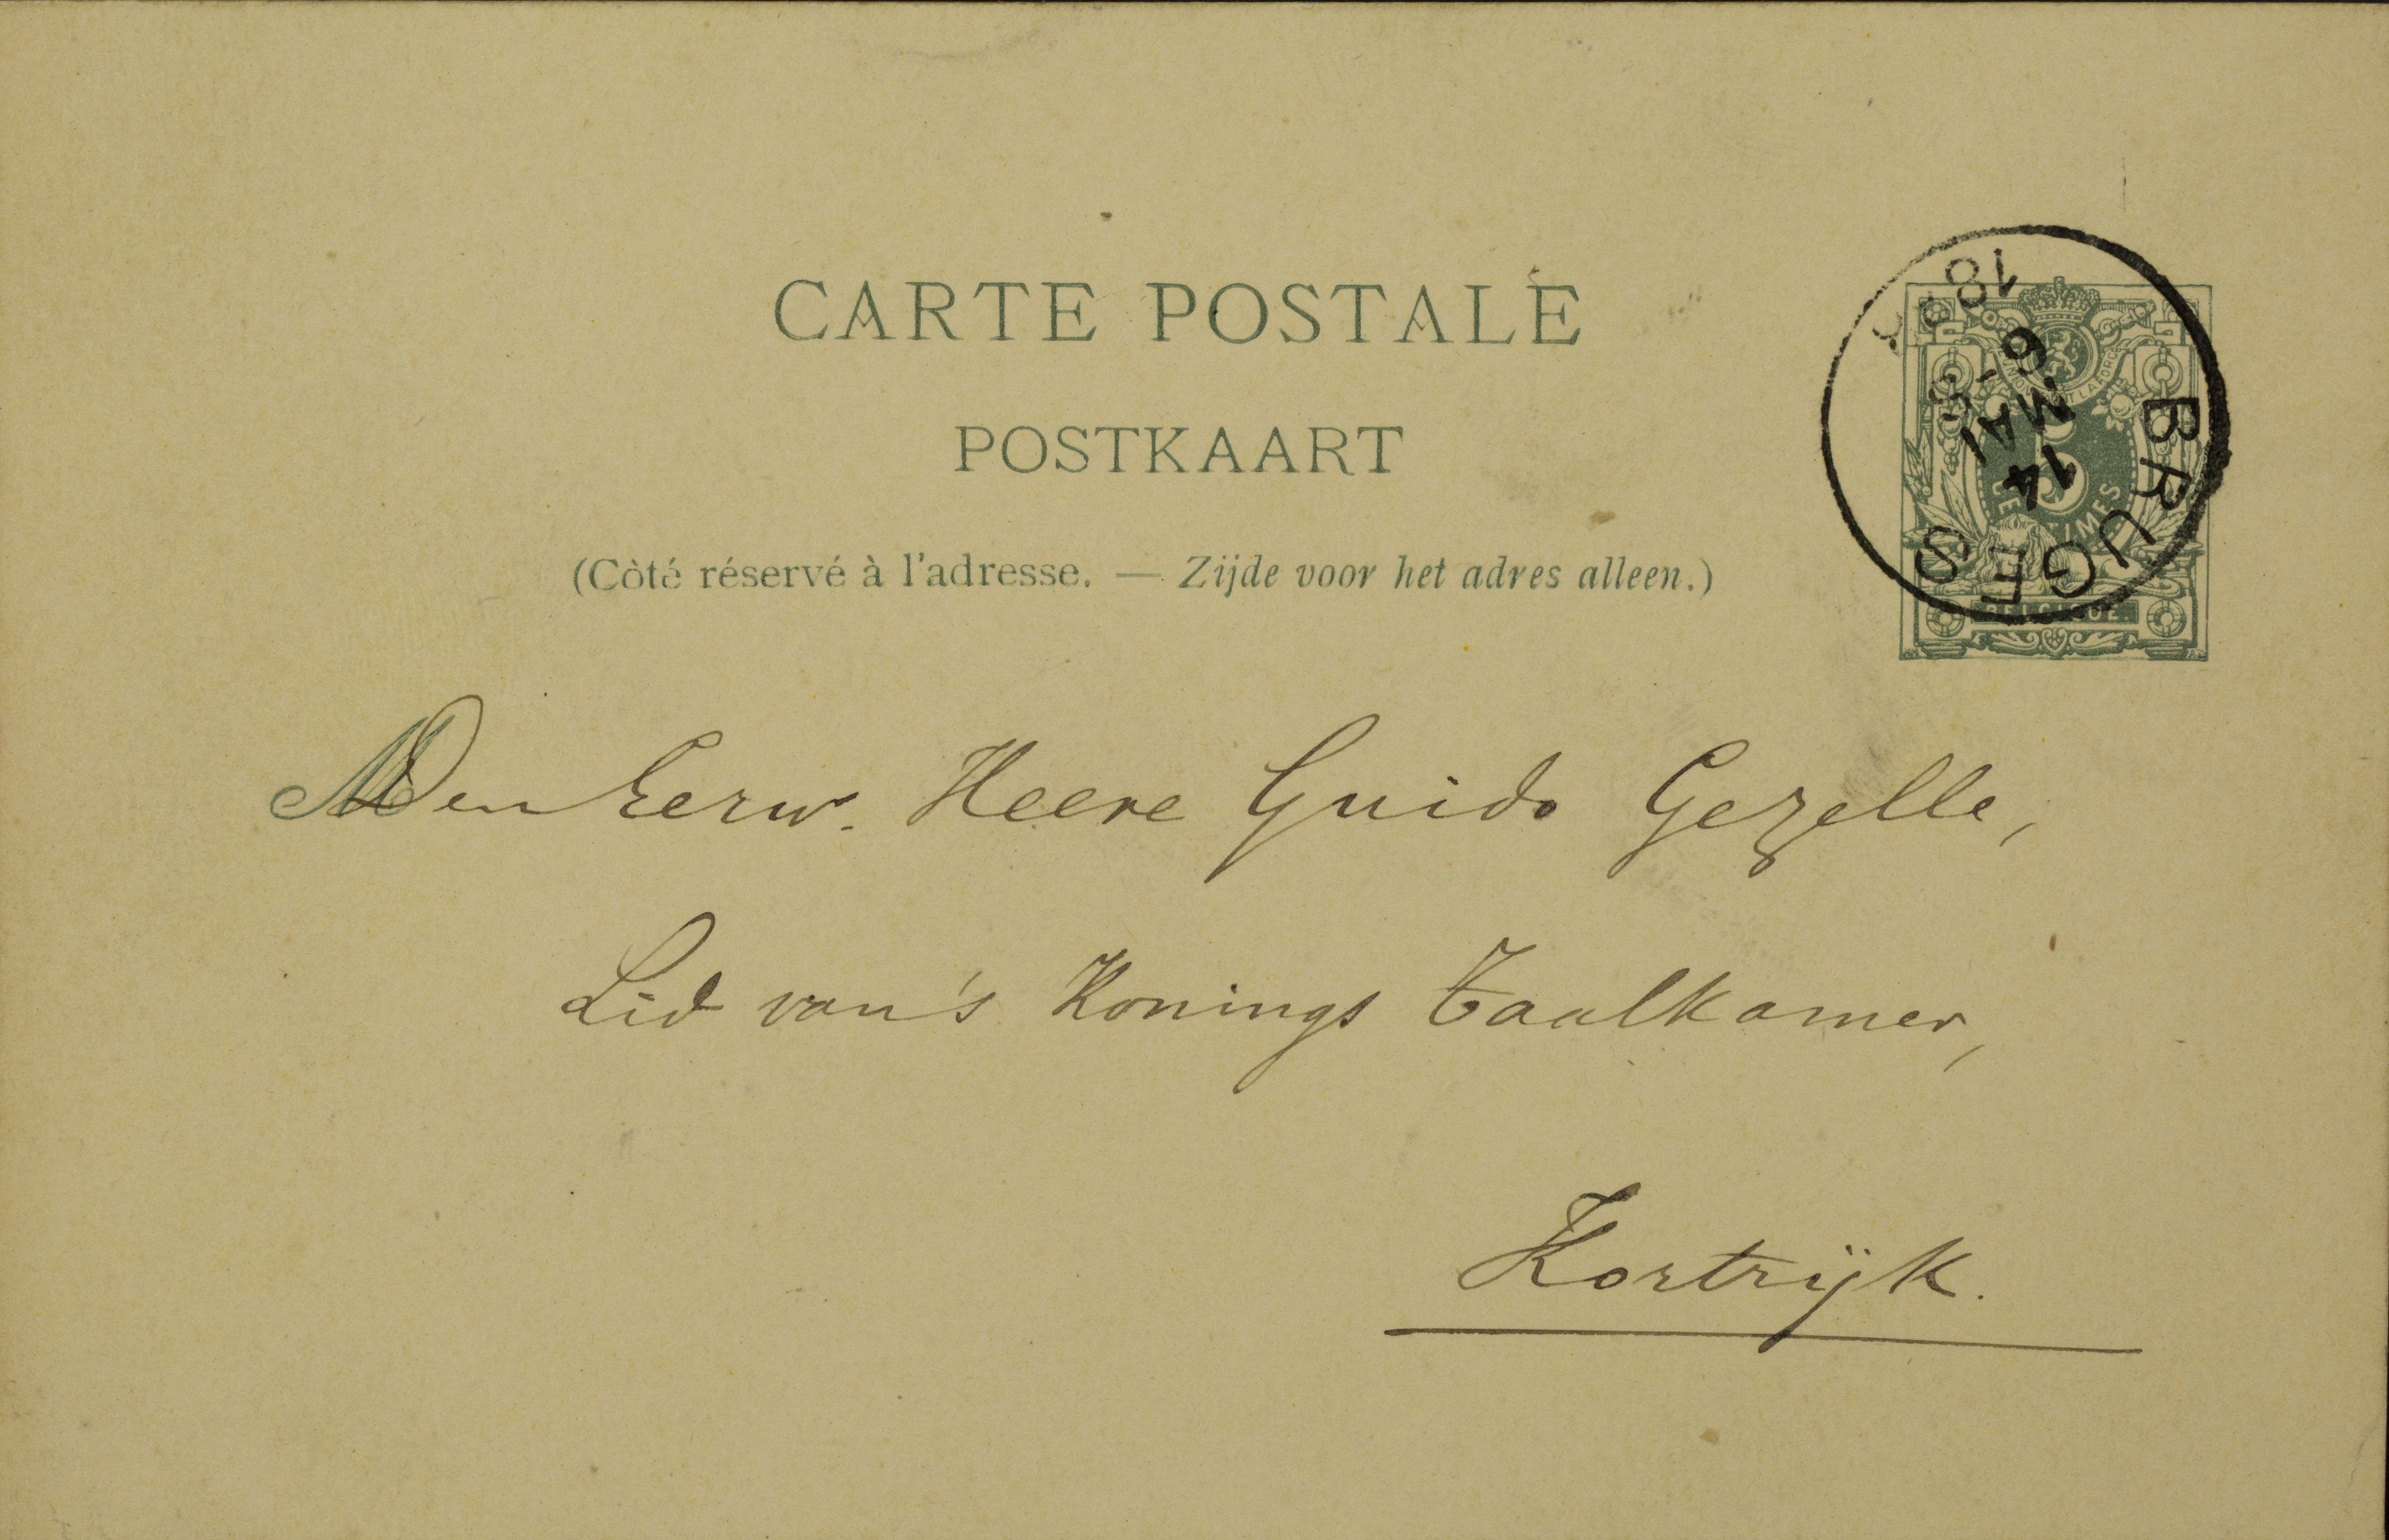 CARTE POSTALE
POSTKAART
(Côté réservé à l'adresse. — Zijde voor het adres alleen.)
BRUGES
14
MAI
6-S
5
CENTIMES
BELGIQUE
M Den Eerw. Heere Guido Gezelle,
Lid van's Konings Taalkamer,
Kortrijk.